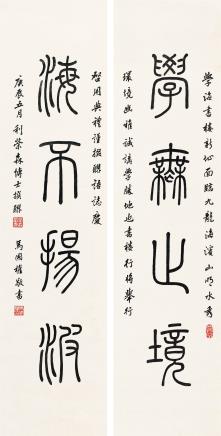 學海書樓新址面臨九龍海濱山明水秀
學無止境
環境幽雅誠講學勝地也書樓行將舉行
啓用典禮謹撰聯語誌慶
海不揚波
庚辰五月利榮森博士撰聯
馬國權敬書